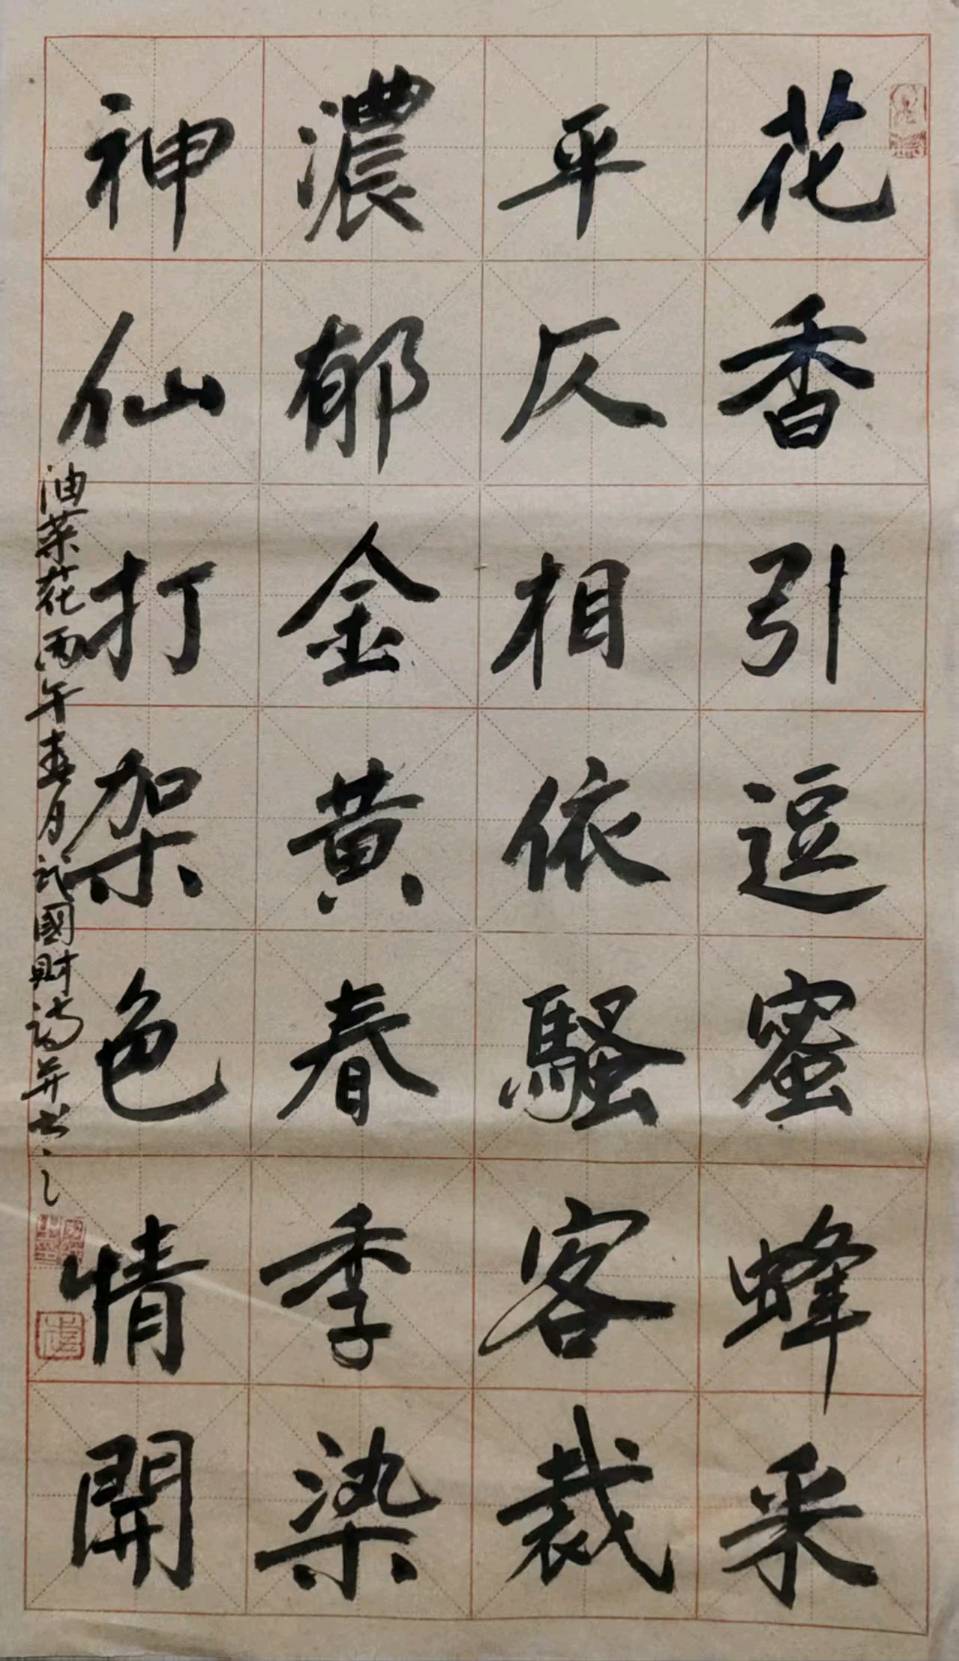 花香引逗蜜蜂采
平仄相依騷客裁
濃郁金黃春季染
神仙打架色情開
油菜花丙午春月武國財詩并书之